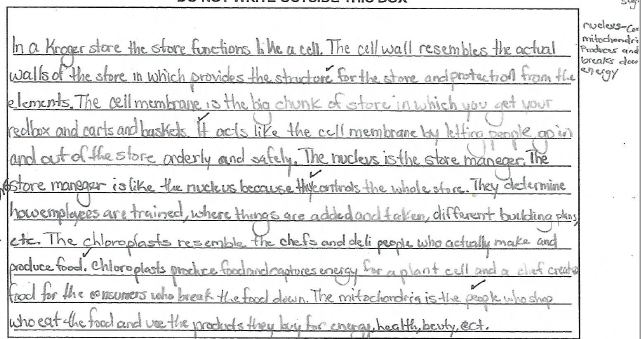 DO NOT WRITE OUTSIDE THIS BOX
In a Kroger store the store functions like a cell. The cell wall resembles the actual
walls of the store in which provides the structure for the store and protection from the
elements. The cell membrane is the big chunk of store in which you get your
redbox and carts and baskets. It acts like the cell membrane by letting people go in
and out of the store orderly and safely. The nucleus is the store maneger. The
store maneger is like the nucleus because they controls the whole store. They determine
how employees are trained, where things are added and taken, different building plans,
etc. The chloroplasts resemble the chefs and deli people who actually make and
produce food. Chloroplasts produce food and captores energy for a plant cell and a chef creates
food for the consumers who break the food down. The mitochondria is the people who shop
who eat the food and use the products they buy for energy, health, beuty, ect.
nucleus-
mitochondri
Produces and
breaks down
energy